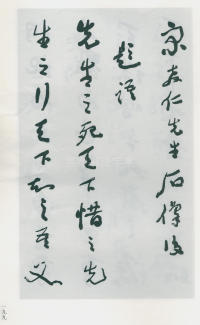 宋教仁先生石像後
題語
先生之死天下惜之先
生之行天下知之吾又
一九九